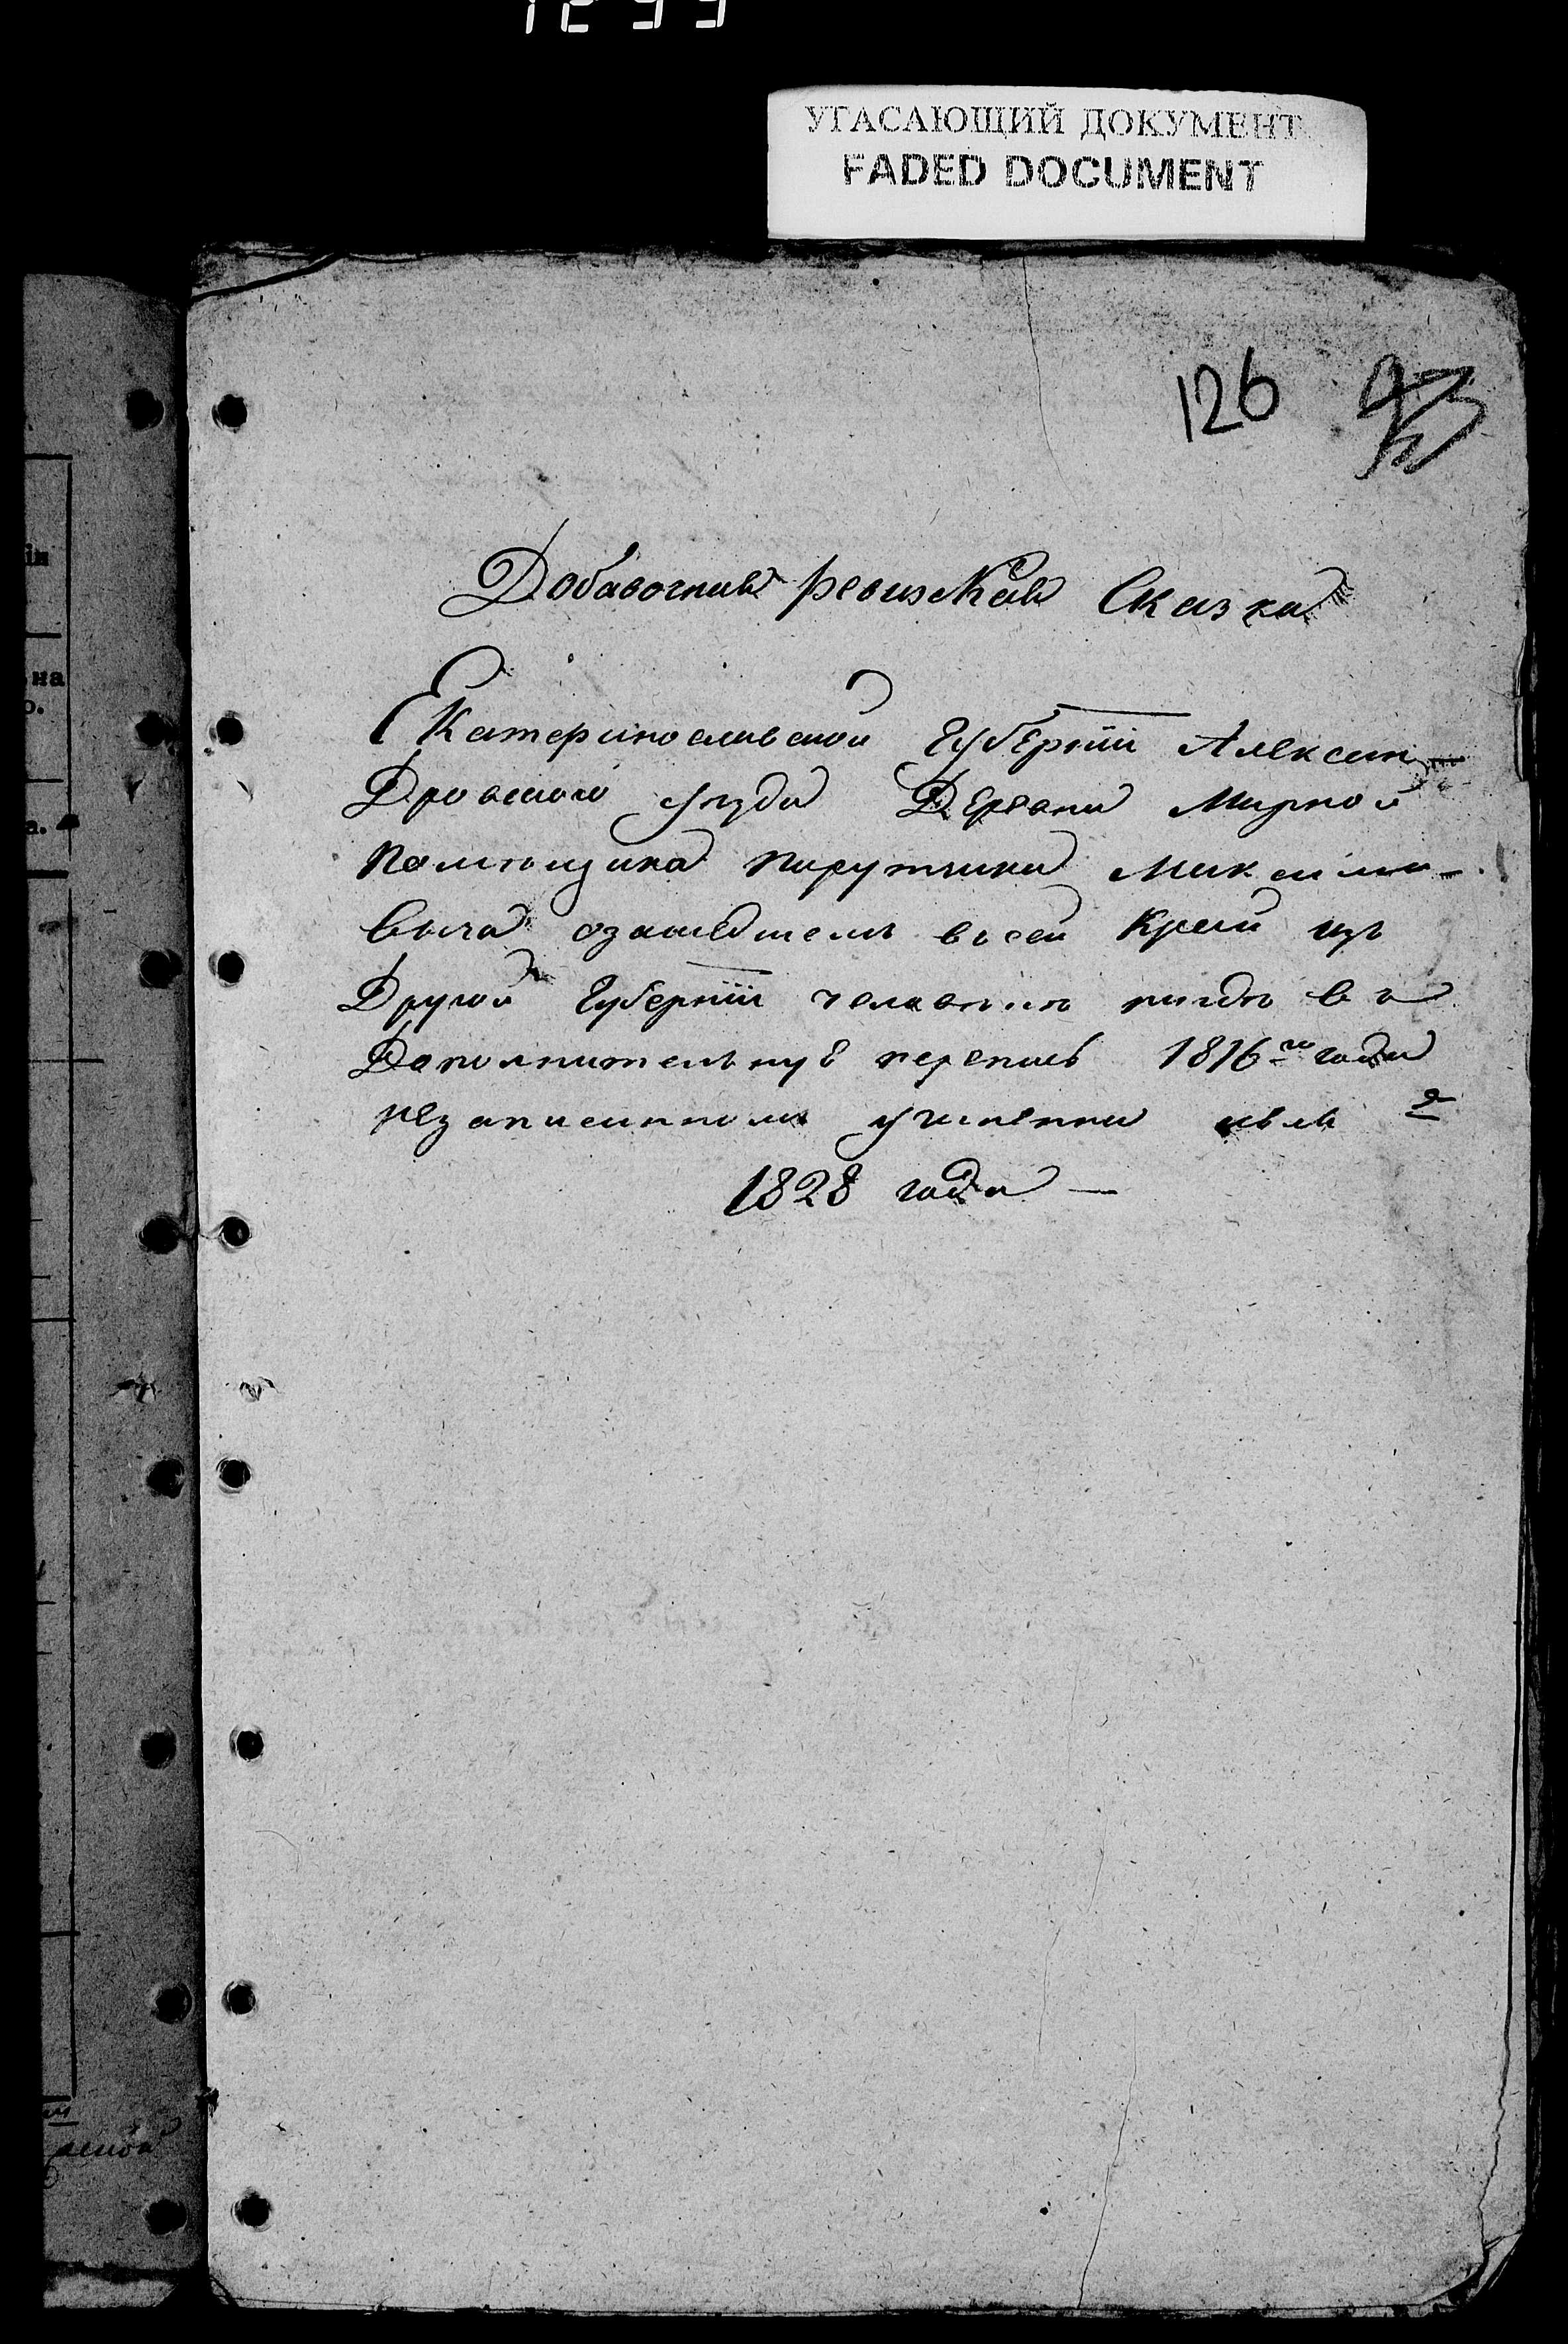 1299
УГАСАЮЩИЙ ДОКУМЕНТ
FADED DOCUMENT
126
Добавочная ревизская Сказка
Екатеринославской Губернiи Алексан
Дровского уезда Деревни Мирной
помещика порутчика Максимо-
вича озашедшемъ въ сей Край изъ
Другой Губернiи человеке нигде въ
Дополнительную перепись 1816го года
незаписанномъ учиненна июля
1828 года —